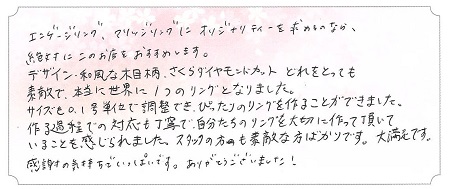 エンゲージリング、マリッジリングにオリジナリティーを求めるのなら、
絶対にこのお店をおすすめします。
デザイン・和風な木目柄、さくらダイヤモンドカット どれをとっても
素敵で、本当に世界に1つのリングとなりました。
サイズも0.1号単位で調整でき、ぴったりのリングを作ることができました。
作る過程での対応も丁寧で、自分たちのリングを大切に作って頂いて
いることを感じられました。スタッフの方々も素敵な方ばかりです。大満足です。
感謝の気持ちでいっぱいです。ありがとうございました!